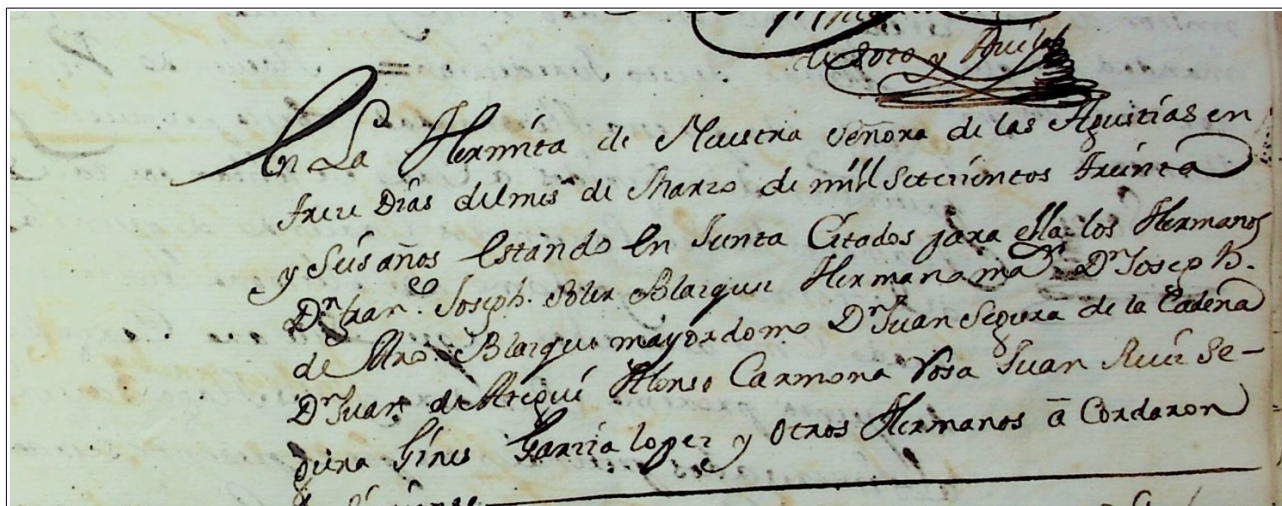 de Soto y Aviles
En La Hermita de Nuestra Señora de las Agustias en
trece Dias del mes de Marzo de mill Setecientos treinta
y Seis años Estando En Junta Citados para ella los Hermanos
Dn Franco Joseph Soler Blazquez Hermano mar Dn Joseph
de Blazquez mayordomo Dn Juan Segura de la Cadena
Dn Juan de Alonso Carmona Juan Ruiz Se-
gura Gines Garzia lopez y Otros Hermanos a Cordaron